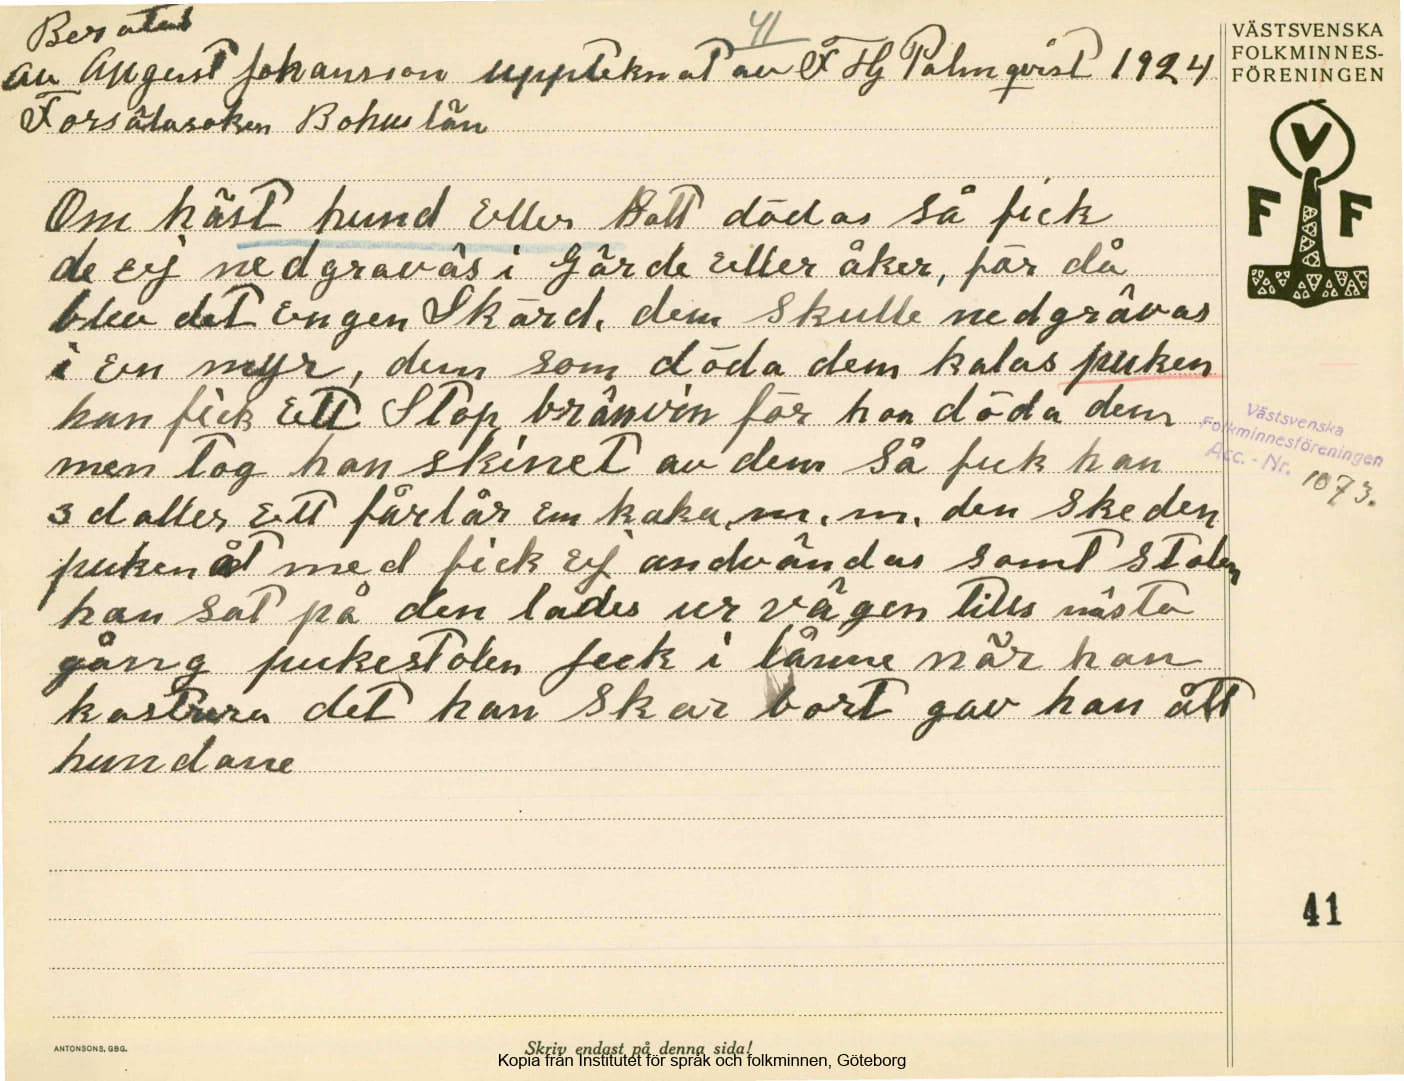 41
Beratat
av August Johansson uppteknat av F Hj Palmqvist 1924
Forsälasoken Bohuslän
Om häst hund eller katt dödas så fick
de ej nedgravas i Gärde eller åker, för då
blev det engen Skärd, dem skulle nedgrävas
i en myr, dem som döda dem kalas puken
han fick ett Stop bränvin för han döda dem
men tog han skinet av dem så feck han
3 daller ett fårlår em kaka, m. m. den skeden
puken åt med fick ej andvändas samt stolen
han sat på den lades ur vägen tills nästa
gång pukestolen feck i lånne når han
kastrera det han skar bort gav han ått
hundane
VÄSTSVENSKA
FOLKMINNES-
FÖRENINGEN
V
F F
Västsvenska
Folkminnesföreningen
Acc. - Nr. 1073.
41
ANTONSONS, GBG.
Skriv endast på denna sida!
Kopia från Institutet för språk och folkminnen, Göteborg